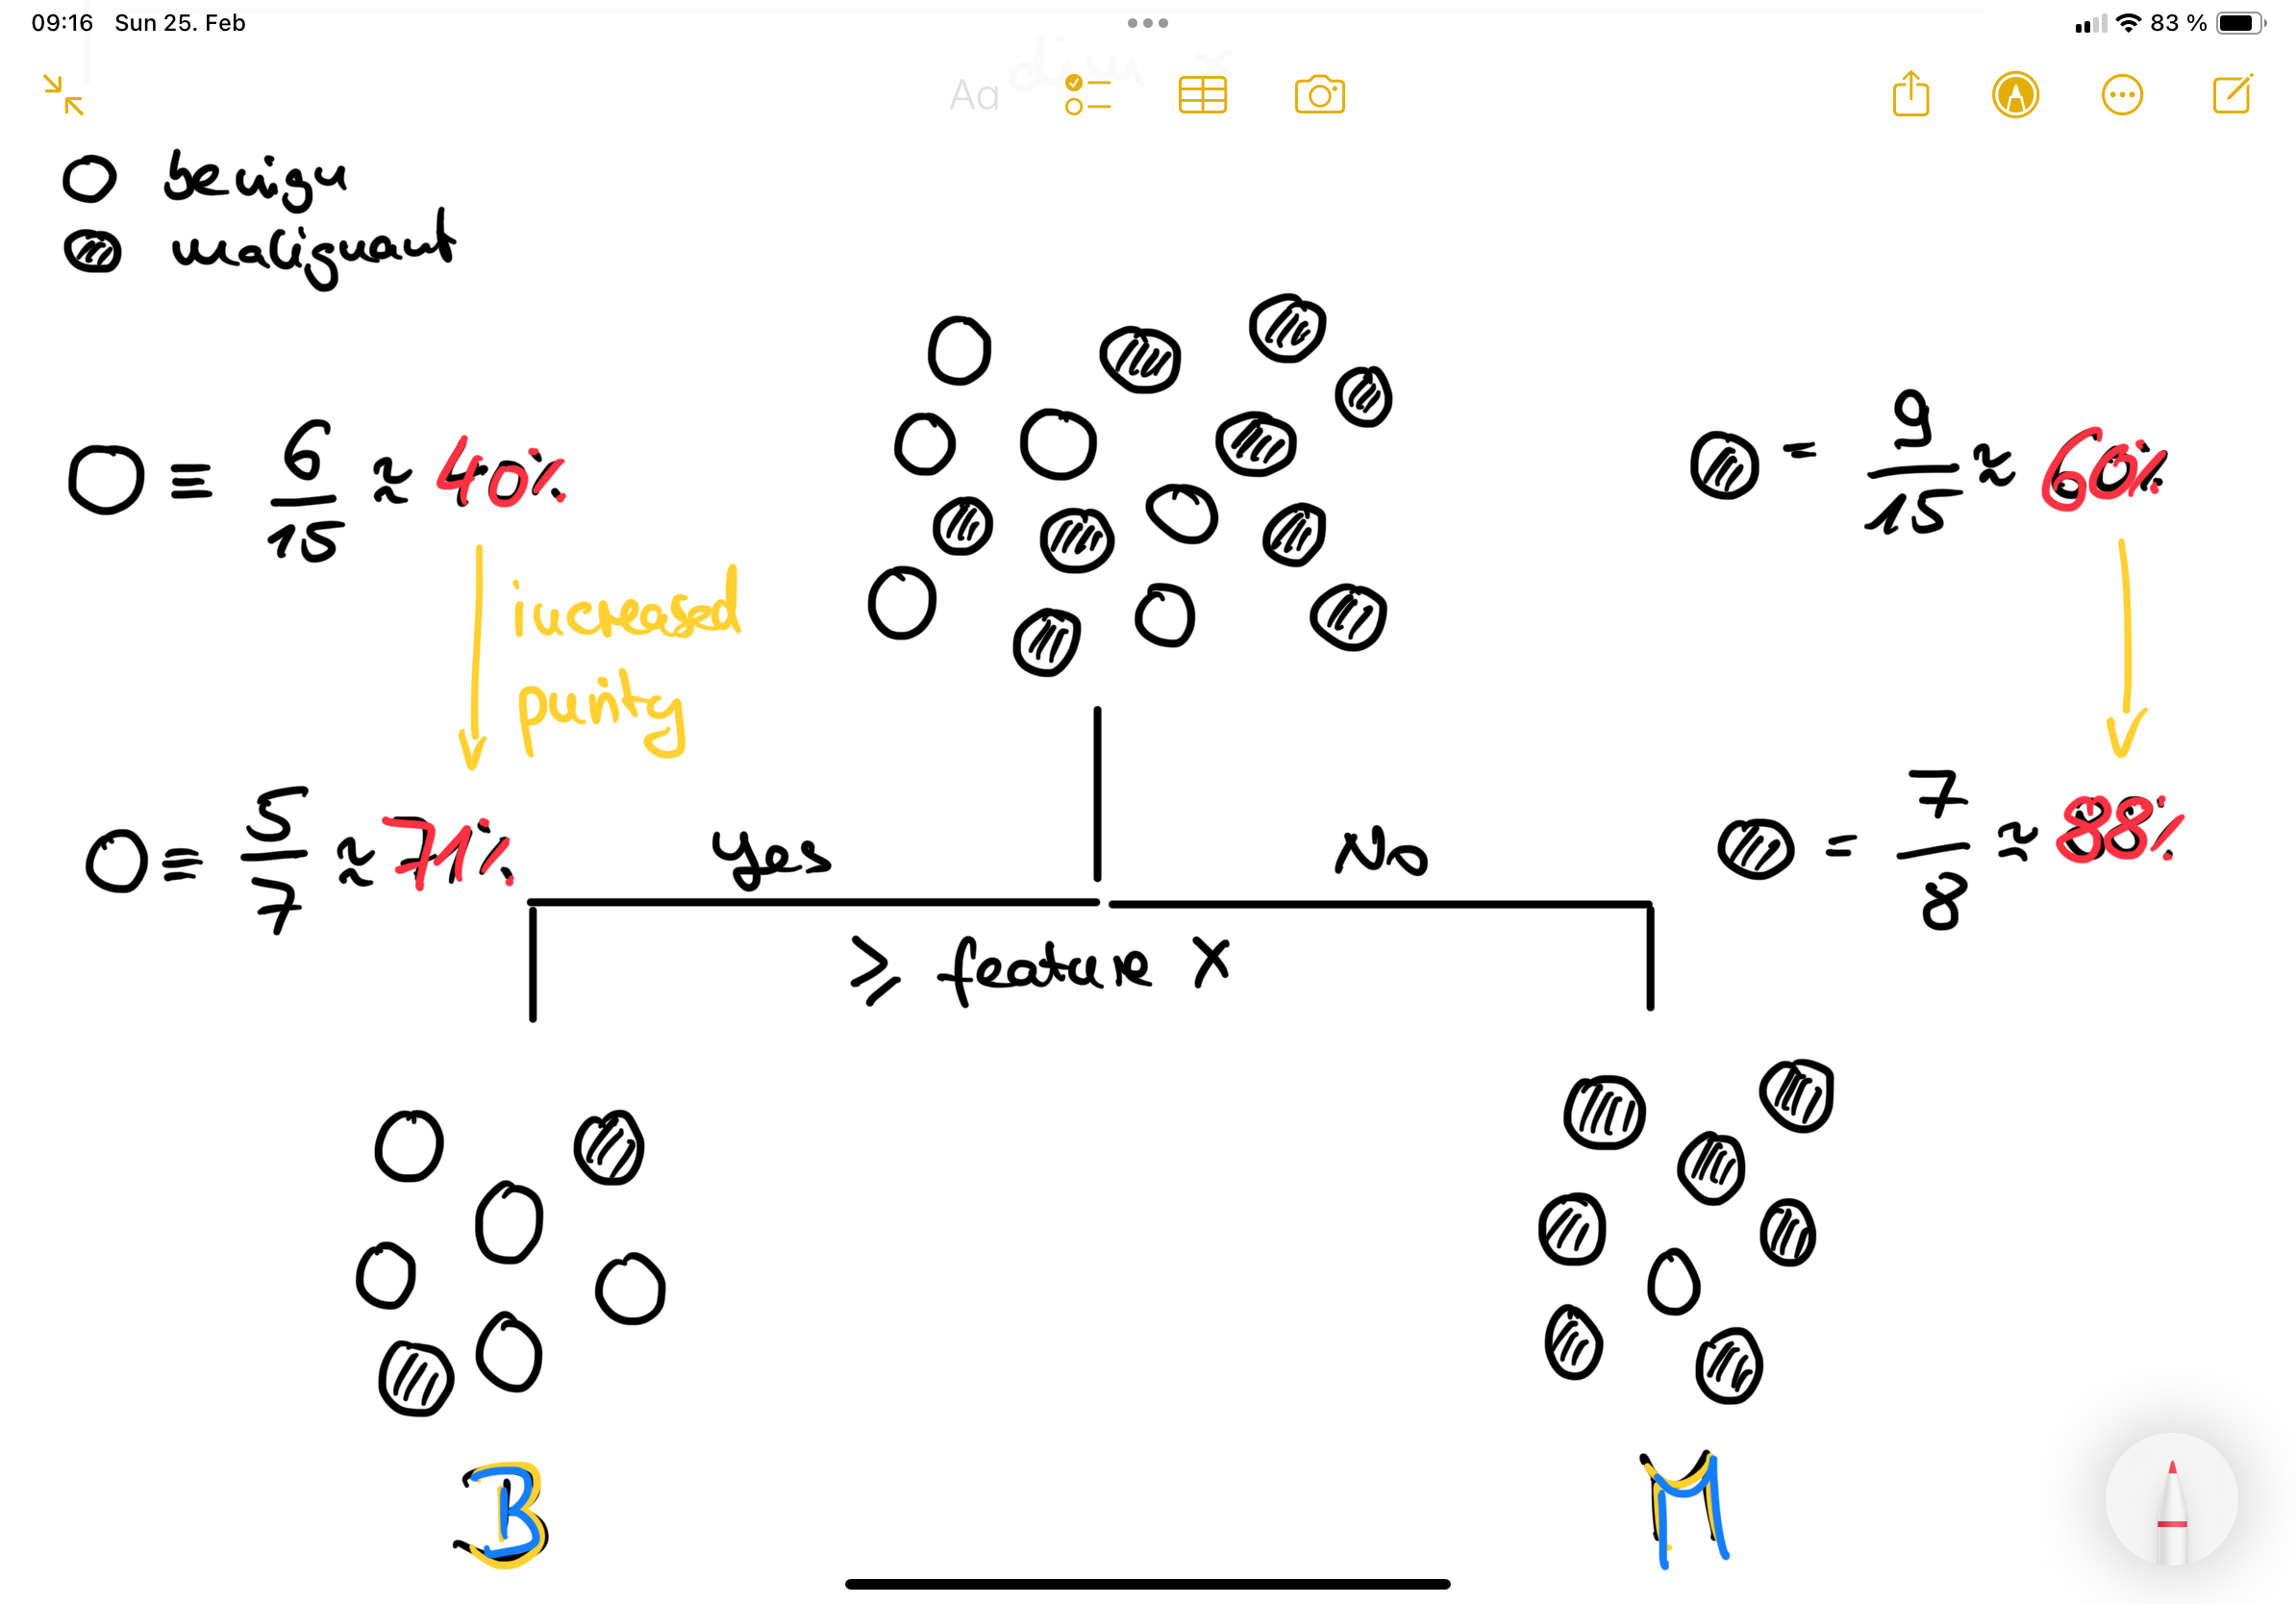 09:16 Sun 25. Feb 83 %
Aa
benign
malignant
= 9/15 ≈ 60%
≡ 6/15 ≈ 40%
increased
purity
≡ 5/7 ≈ 71%
yes
No
= 7/8 ≈ 88%
≥ feature X
B
M